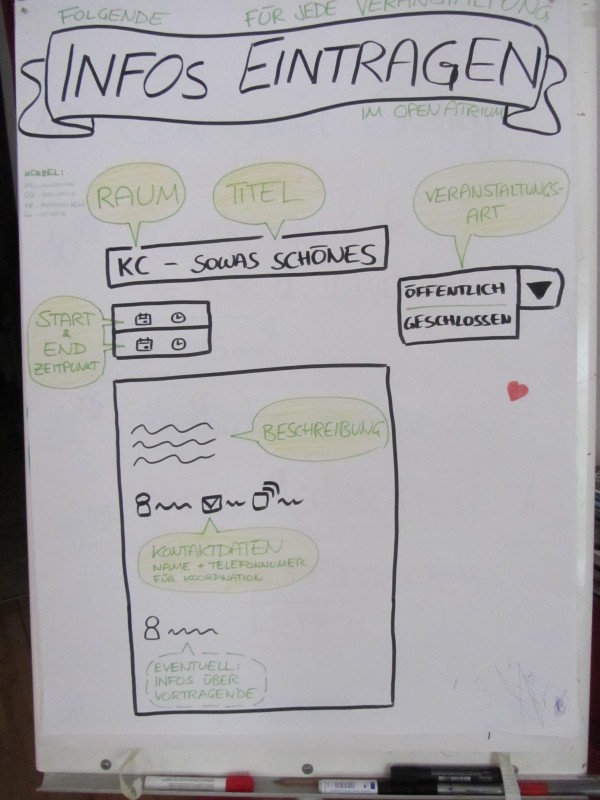 FOLGENDE FÜR JEDE VERANSTALTUNG
INFOS EINTRAGEN
IM OPEN ATRIUM
KÜRZEL:
RAUM
TITEL
VERANSTALTUNGS-
ART
KC - SOWAS SCHÖNES
ÖFFENTLICH
GESCHLOSSEN
START
&
END
ZEITPUNKT
BESCHREIBUNG
KONTAKTDATEN
NAME + TELEFONNUMER
FÜR KOORDINATION
EVENTUELL:
INFOS ÜBER
VORTRAGENDE